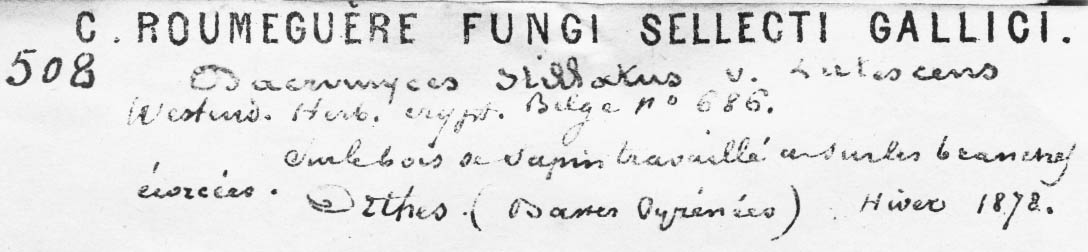 C. ROUMEGUÈRE FUNGI SELLECTI GALLICI.
508 Dacrymyces stillatus v. Lutescens
Westend. Herb. crypt. Belge nº 686.
Sur le bois de Sapin travaillé et sur les branches
écorcées. Orthes (Basses Pyrénées) Hiver 1878.